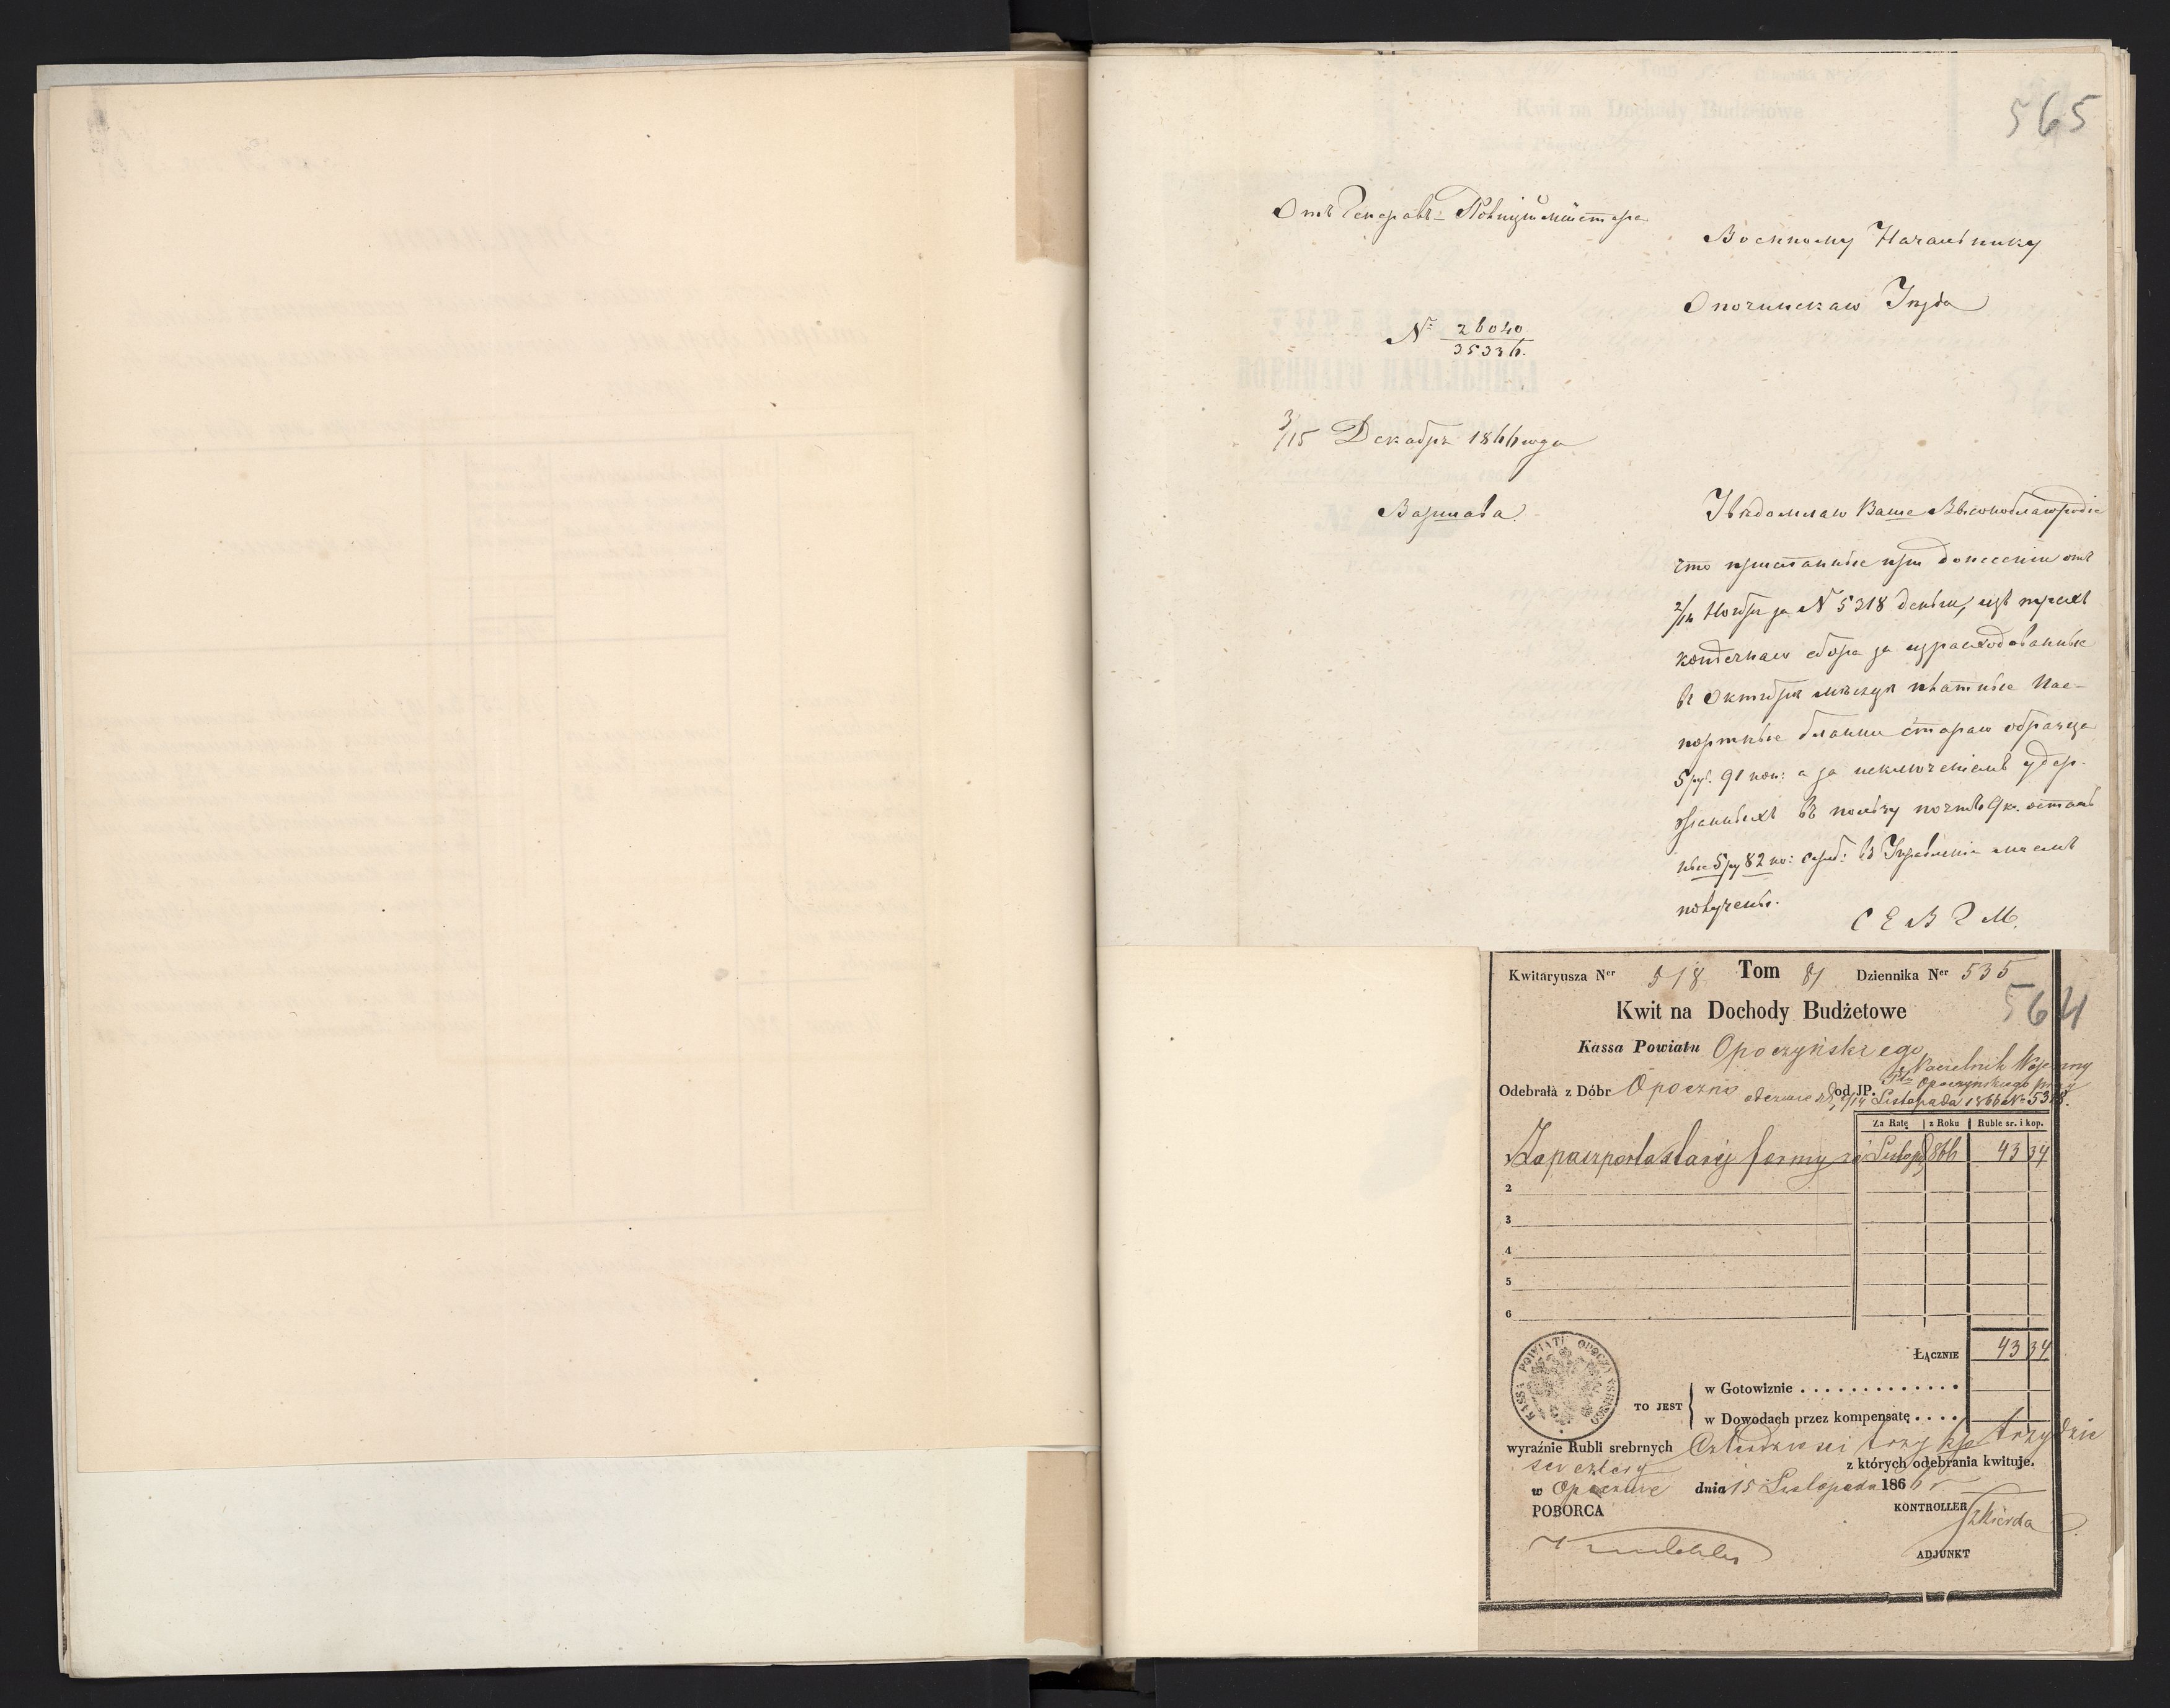 565
Отъ Генералъ-Полицiймейстера
Военному Начальнику
Опочинскаго Уѣзда
№ 26040
35336.
3/15 Декабря 1866 года
Варшава.
Увѣдомляю Ваше Высокоблагородiе
что присланные при донесенiи отъ
2/14 Ноября за N 5318 деньги, изъ трехъ
копѣечнаго сбора за израсходованные
въ Октябрѣ мѣсяцѣ платные пас-
портные бланки стараго образца
5 руб. 91 коп: а за исключенiемъ удер-
жанныхъ въ пользу почтъ 9 к. осталь
ные 5 ру 82 ко: сереб: въ Управленiи моемъ
получены.
С Е В Г М.
Kwitaryusza Ner 518 Tom 81 Dziennika Ner 535
564
Kwit na Dochody Budżetowe
Kassa Powiatu Opoczyńskiego
Odebrała z Dóbr Opoczno od JP. Naczelnik Wojenny
Ptu Opoczyńskiego przy
odezwie z d. 2/14 Listopada 1866 No 5318.
Za Ratę z Roku Ruble sr. i kop.
Za paszporta starej formy za Listop 866 43 34
2
3
4
5
6
Łącznie 43 34
KASSA POWIATU OPOCZYŃSKIEGO
TO JEST
w Gotowiznie . . . . . . . . . . . . .
w Dowodach przez kompensatę . . . .
wyraźnie Rubli srebrnych Czterdzieści trzy kop trzydzie
ści cztery
z których odebrania kwituje.
w Opocznie dnia 15 Listopada 1866 r
POBORCA KONTROLLER
ADJUNKT